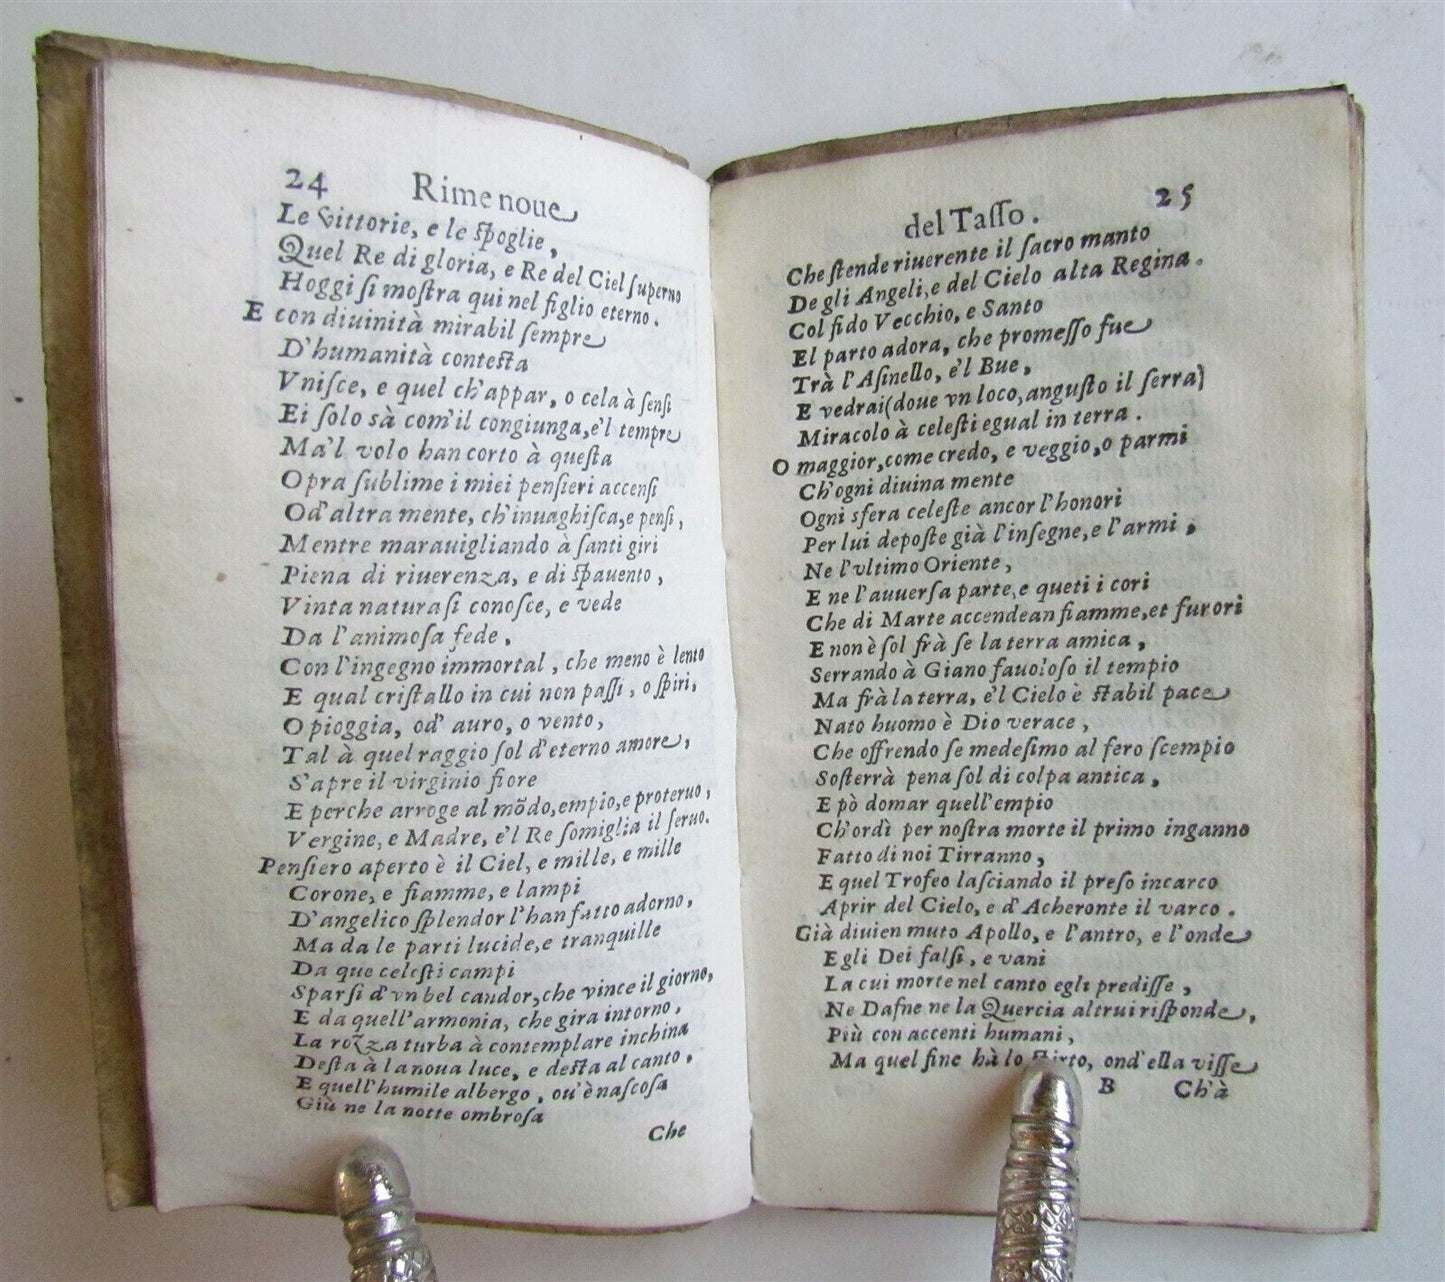 24 Rime noue
Le Vittorie, e le ſpoglie,
Quel Re di gloria, e Re del Ciel ſuperno
Hoggi ſi moſtra qui nel figlio eterno.
E con diuinità mirabil ſempre
D'humanità conteſta
Vniſce, e quel ch'appar, o cela à ſenſi
Ei ſolo sà com'il congiunga, e'l tempre
Ma'l volo han corto à queſta
Opra ſublime i miei penſieri accenſi
Od'altra mente, ch'inuaghiſca, e penſi,
Mentre marauigliando à ſanti giri
Piena di riuerenza, e di ſpauento,
Vinta natura ſi conoſce, e vede
Da l'animoſa fede,
Con l'ingegno immortal, che meno è lento
E qual criſtallo in cui non paſſi, o ſpiri,
O pioggia, od' auro, o vento,
Tal à quel raggio ſol d'eterno amore,
S'apre il virginio fiore
E perche arroge al mõdo, empio, e proteruo,
Vergine, e Madre, e'l Re ſomiglia il ſeruo.
Penſiero aperto è il Ciel, e mille, e mille
Corone, e fiamme, e lampi
D'angelico ſplendor l'han fatto adorno,
Ma da le parti lucide, e tranquille
Da que celeſti campi
Sparſi d'vn bel candor, che vince il giorno,
E da quell'armonia, che gira intorno,
La rozza turba à contemplare inchina
Deſta à la noua luce, e deſta al canto,
E quell'humile albergo, ou'è naſcoſa
Giù ne la notte ombroſa
Che
del Taſſo. 25
Che ſtende riuerente il ſacro manto
De gli Angeli, e del Cielo alta Regina.
Col fido Vecchio, e Santo
El parto adora, che promeſſo fue
Trà l'Aſinello, e'l Bue,
E vedrai (doue vn loco, anguſto il ſerra)
Miracolo à celeſti egual in terra.
O maggior, come credo, e veggio, o parmi
Ch'ogni diuina mente
Ogni sfera celeſte ancor l'honori
Per lui depoſte già l'inſegne, e l'armi,
Ne l'vltimo Oriente,
E ne l'auuerſa parte, e queti i cori
Che di Marte accendean fiamme, et furori
E non è ſol frà ſe la terra amica,
Serrando à Giano fauoloſo il tempio
Ma frà la terra, e'l Cielo è ſtabil pace
Nato huomo è Dio verace,
Che offrendo ſe medeſimo al fero ſcempio
Soſterrà pena ſol di colpa antica,
E pò domar quell'empio
Ch'ordì per noſtra morte il primo inganno
Fatto di noi Tirranno,
E quel Trofeo laſciando il preſo incarco
Aprir del Cielo, e d'Acheronte il varco.
Già diuien muto Apollo, e l'antro, e l'onde
E gli Dei falſi, e vani
La cui morte nel canto egli prediſſe,
Ne Dafne ne la Quercia altrui riſponde,
Più con accenti humani,
Ma quel fine hà lo ſpirto, ond'ella viſſe
B Ch'à